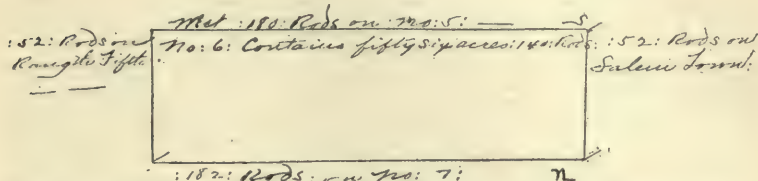 Met :180: Rods on :No:5: — S
:52: Rods on
Range Fifth
No: 6: Contains fifty six acres:140:Rods
:52: Rods on
Salem Town:
:182: Rods on No: 7: N